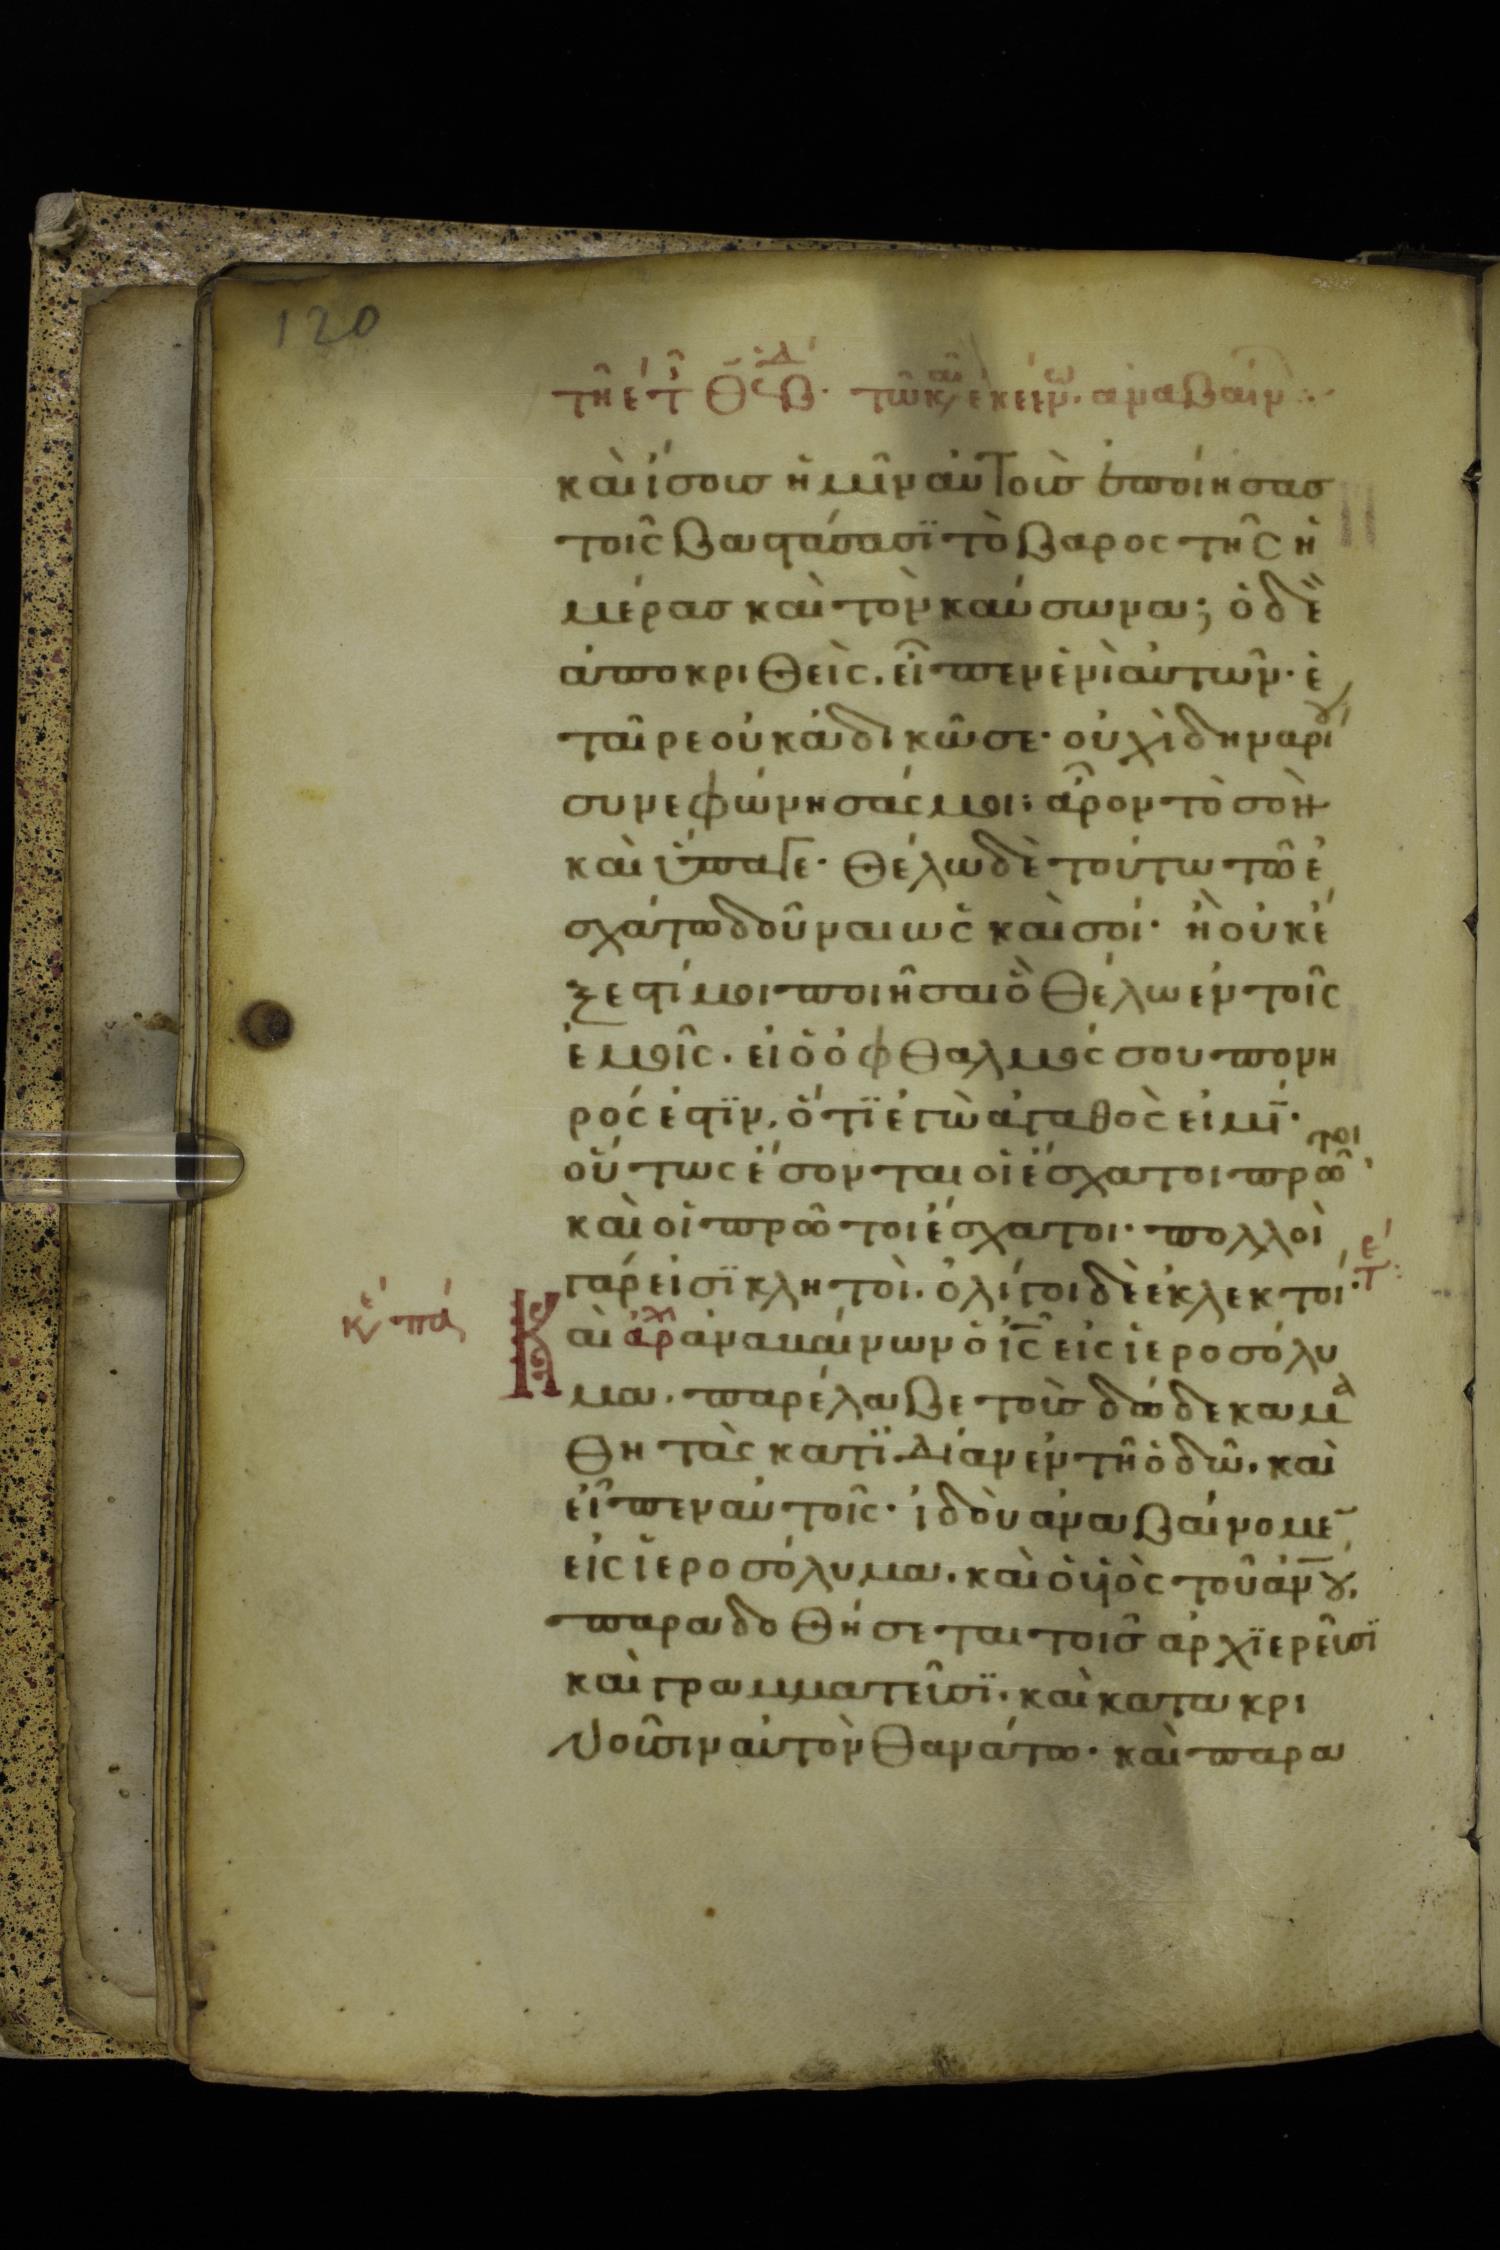 120
τῆ ε τ τῶ κ ἐκείν. ἀναβαίν
καὶ ἴσους ἡμῖν αὐτοὺς ἐποίησας
τοῖς βαστάσασϊ τὸ βάρος τῆς ἡ
μέρας καὶ τὸν καύσωνα; ὁ δὲ
ἀποκριθεὶς. εἶπεν ἑνὶ αὐτῶν· ἑ
ταῖρε οὐκ ἀδικῶ σε· οὐχὶ δηναρί
συνεφώνησάς μοι; ἆρον τὸ σὸν
καὶ ὕπαγε· θέλω δὲ τούτω τῶ ἐ
σχάτω δοῦναι ὡς καὶ σοί· ἢ οὐκ ἔ
ξεστί μοι ποιῆσαι ὃ θέλω ἐν τοῖς
ἐμοῖς. εἰ ὁ ὀφθαλμός σου πονη
ρός ἐστϊν, ὅτϊ ἐγὼ ἀγαθὸς εἰμῒ·
οὕτως ἔσονται οἱ ἔσχατοι πρῶτοι,
καὶ οἱ πρῶτοι ἔσχατοι· πολλοὶ
γάρ εἰσϊ κλητοὶ. ὀλίγοι δὲ ἐκλεκτοί· τε
κε πα Καὶ ἀρχ ἀναβαίνων ὁ ις εἰς ἱεροσόλυ
μα. παρέλαβε τοὺς δώδεκα μα
θητὰς κατϊδίαν ἐν τῆ ὁδῶ. καὶ
εἶπεν αὐτοῖς· ἰδοὺ ἀναβαίνομε
εἰς ἱεροσόλυμα. καὶ ὁ υἱὸς τοῦ ανου,
παραδοθήσεται τοῖς ἀρχϊερεῦσϊ
καὶ γραμματεῦσϊ. καὶ κατακρι
νοῦσιν αὐτὸν θανάτω· καὶ παρα